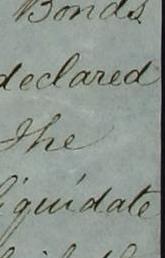 Bonds
declared
the
liquidate